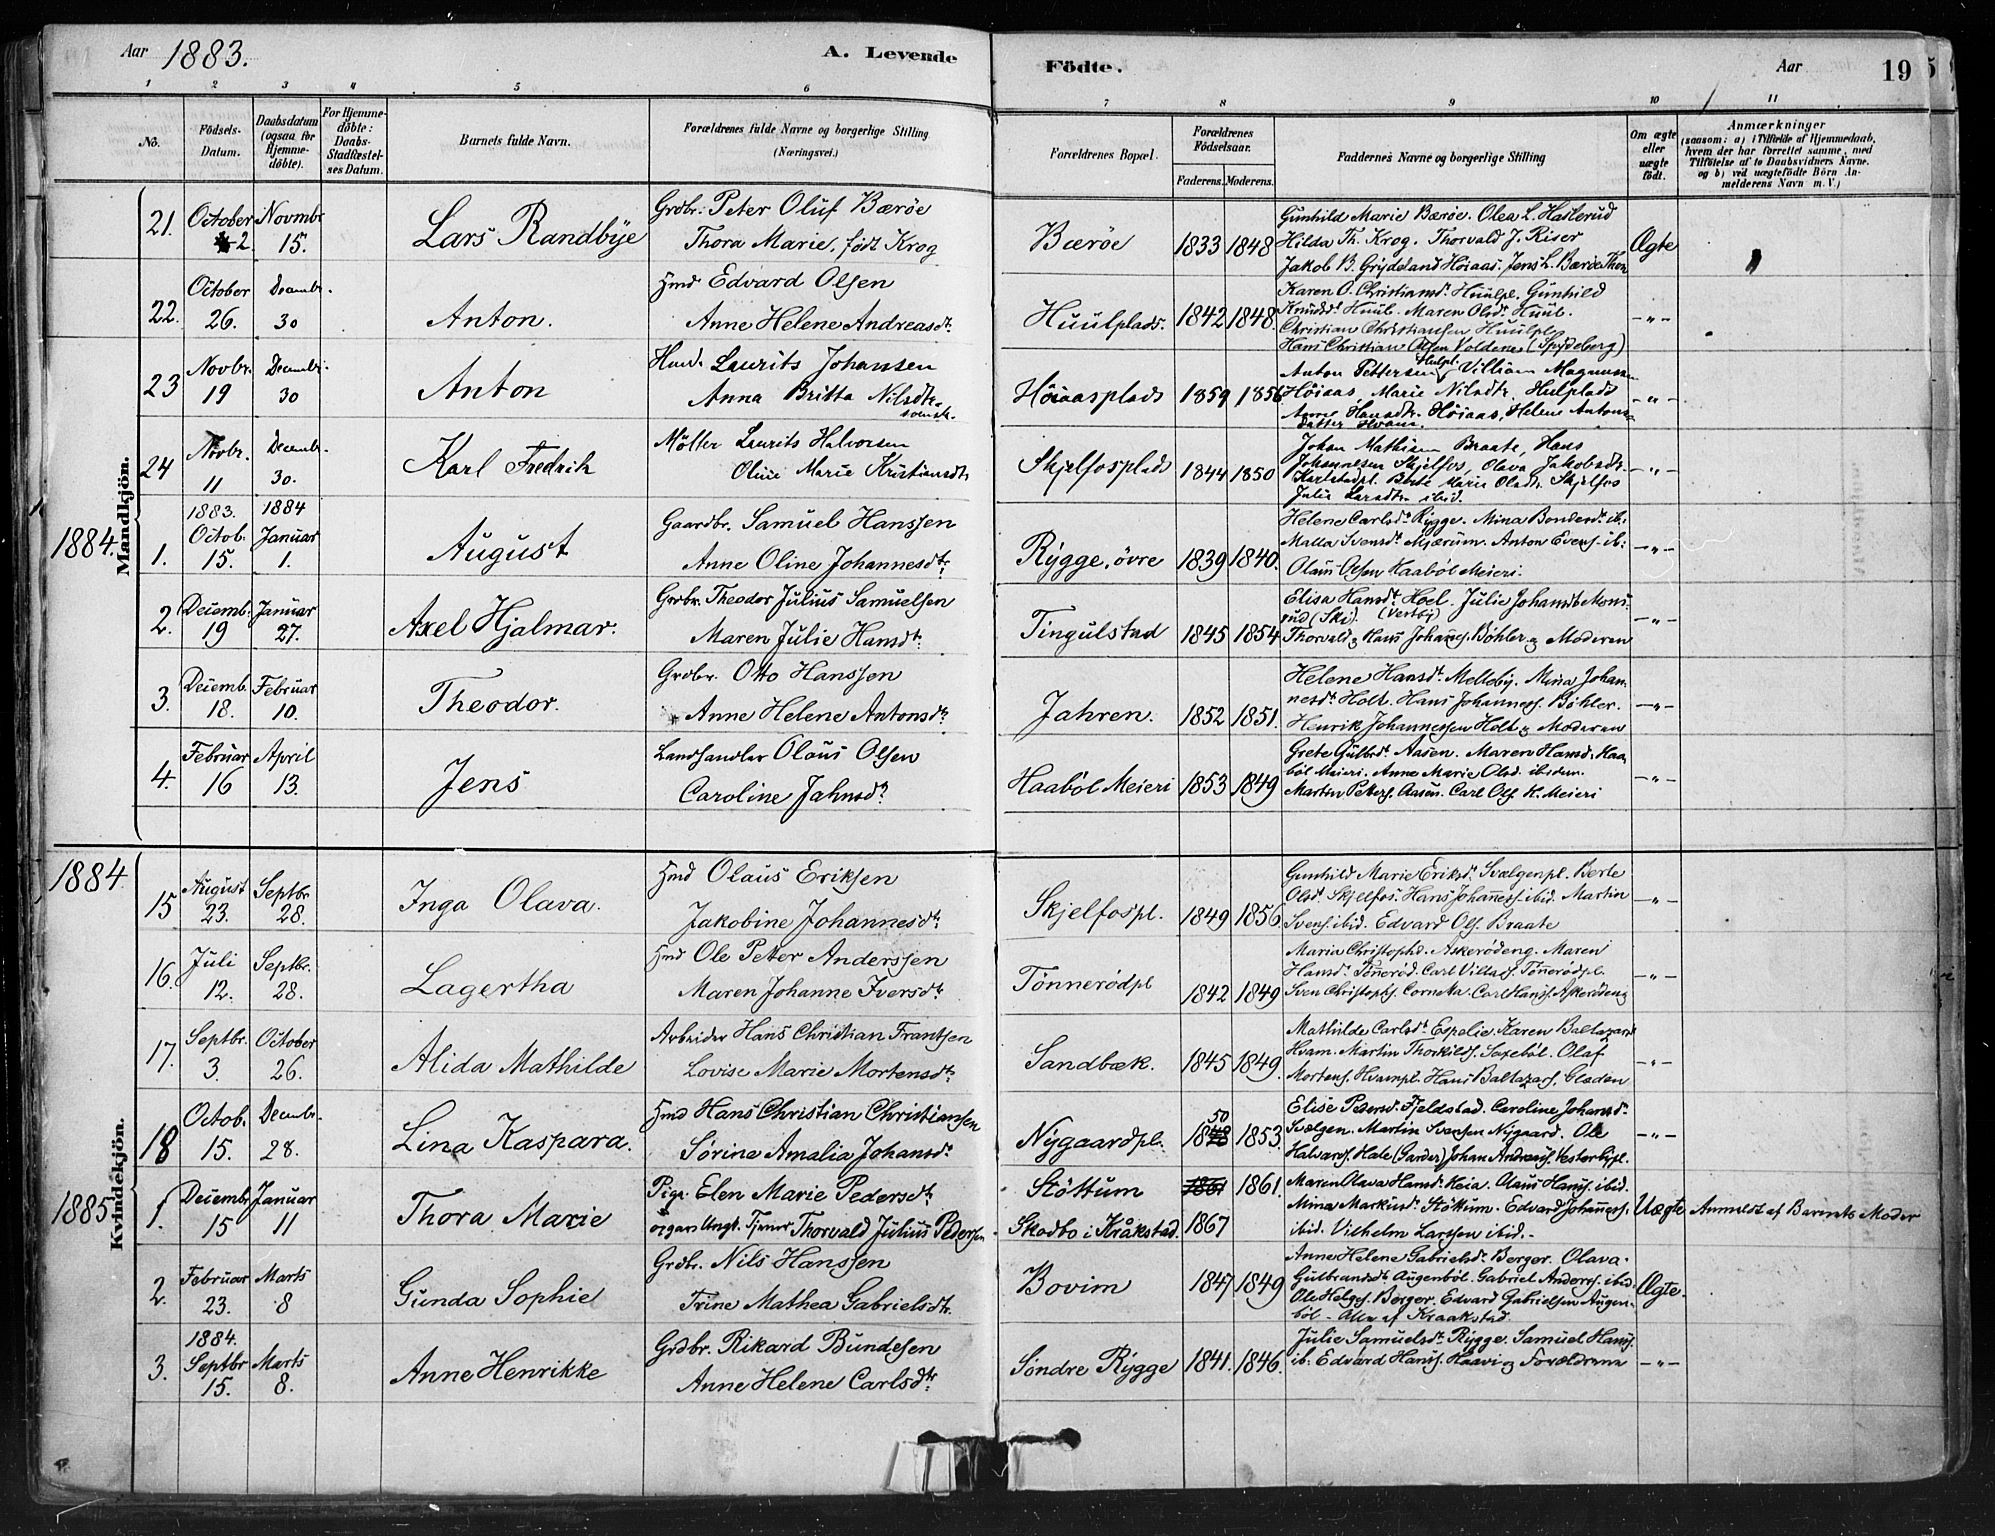 Aar 1883. A. Levende Födte. Aar 19
1 2 3 4 5 6 7 8 9 10 11
No. Födsels-Datum. Daabsdatum (ogsaa for Hjemmedøbte). For Hjemmedøbte: Daabs-Stadfæstelses Datum. Barnets fulde Navn. Forældrenes fulde Navne og borgerlige Stilling (Næringsvei.) Forældrenes Bopæl. Forældrenes Födselsaar. Faderens. Moderens. Faddernes Navne og borgerlige Stilling Om ægte eller uægte födt. Anmærkninger
(saasom: a) i Tilfælde af Hjemmedaab, hvem der har forrettet samme, med Tilföielse af to Daabsvidners Navne. og b) ved uægtefödte Börn Anmelderens Navn m. V.)
Mandkjön.
21. October 2. Novmbr. 15. Lars Randbye Grdbr. Peter Oluf Bærøe
Thora Marie, født Krog
Bærøe 1833 1848 Gunhild Marie Bærøe. Olea L. Haslerud
Hilda Th. Krog. Thorvald J. Riser
Jakob B. Grydeland Høiaas. Jens L. Bærøe Ægte
22. October 26. Decembr. 30 Anton. Hmd Edvard Olsen
Anne Helene Andreasdt.
Huulplads. 1842 1848. Karen O. Christiansdt. Huulpl. Gunhild
Knudsdt. Huul. Maren Olsdt. Huul.
Christian Christiansen Huulpl.
Hans Christian Olsen Voldene (Spydeberg) -"-
23 Novbr. 19 Decembr. 30 Anton Hmd. Laurits Johansen
Anna Britta Nilsdtr.
svensk.
Høiaasplads 1859 1856 Anton Pettersen Hulpl. Villiam Magnussen
Høiaas, Marie Nilsdtr. Hulplads
Anne Hansdtr. Høiaas, Helene Antons-
datter Hvam. -"-
24 Novbr. 11 Decembr. 30. Karl Fredrik Møller Laurits Halvorsen
Oline Marie Kristiansdtr
Skjelfosplads 1844 1850 Johan Mathisen Braate, Hans
Johannesen Skjelfos, Olava Jakobsdtr.
Karlstadpl. Berte Marie Olsdtr. Skjelfos
Julie Larsdtr. ibid. -"-
1884. 1. 1883. Octob. 15. 1884 Januar 1. August Gaardbr. Samuel Hanssen
Anne Oline Johannesdtr.
Rygge, övre 1839 1840. Helene Carlsdt. Rygge. Mina Bondesdt. ib:
Malla Svensdt. Mjærum. Anton Evens. ib:
Olaus Olsen Haabøl Meieri. -"-
2. Decemb. 19 Januar 27. Axel Hjalmar. Grdbr. Theodor Julius Samuelsen
Maren Julie Hansdt.
Tingulstad 1845 1854 Elisa Hansdt. Hoel. Julie Johansdt. Mons-
rud (Ski). (Vestby)
Thorvald & Hans Johannes. Bøhler & Moderen -"-
3. Decemb. 18. Februar 10. Theodor. Grdbr. Otto Hanssen
Anne Helene Antonsdt.
Jahren. 1852 1851. Helene Hansdt. Melleby. Mina Johan-
nesdt. Holt. Hans Johanness. Bøhler.
Henrik Johannessen Holt & Moderen -"-
4. Februar 16 April 13. Jens Landhandler Olaus Olsen
Caroline Jahnsdt.
Haaböl Meieri 1853 1849 Grete Gulbsdt. Aasen. Maren Hansd. Haa-
bøl Meieri. Anne Marie Olsd. ibidem.
Martin Peters. Aasen. Carl Ols. H. Meieri -"-
Kvindekjön.
1884 15 August 23. Septbr. 28. Inga Olava. Hmd Olaus Eriksen
Jakobine Johannesdt.
Skjelfospl. 1849 1856. Gunhild Marie Eriksdt. Svælgenpl. Berte
Olsdt. Skjelfos. Hans Johanness. ibid. Martin
Svens. ibid. Edvard Ols. Braate -"-
16. Juli 12. Septbr. 28. Lagertha Hmd Ole Peter Anderssen
Maren Johanne Iversdt.
Tönnerödpl 1842 1849 Maria Christophd. Askerødeng. Maren
Hansdt. Tönnerød. Carl Villads. Tönnerødpl.
Sven Christophs. Corneta. Carl Hanss. Askerødeng -"-
17. Septbr. 3. October 26. Alida Mathilde Arbeider Hans Christian Frantsen
Lovise Marie Mortensdt.
Sandbæk. 1845 1849. Mathilde Carlsdt. Espelie. Karen Baltazard.
Hvam. Martin Thorkilds. Saxebøl. Olaf
Mortens. Hvampl. Hans Baltazars. Gladen -"-
18 Octob. 15. Decembr. 28. Lina Kaspara. Hmd Hans Christian Christiansen
Sørine Amalia Johansdt.
Nygaardpl. 1850 1853. Elise Pedersd. Fjeldstad. Caroline Johansdt.
Svælgen. Martin Svensen Nygaard. Ole
Halvars. Hale (Garder) Johan Andreas. Vesterbypl. -"-
1885 1. Decembr. 15 Januar 11 Thora Marie Pige Elen Marie Pedersdt.
og Ungk. Tjener Thorvald Julius Pedersen
Stöttum 1861 1861.
Skodbo i Kråkstad. 1867 Maren Olava Hansd. Haia. Olaus Hanss. ibid.
Mina Markusdt. Støttum. Edvard Johanness.
ibid. Vilhelm Larssen ibid. Uægte Anmeldt af Barnets Moder
2. Februar 23. Marts 8 Gunda Sophie Grdbr. Nils Hanssen
Trine Mathea Gabrielsdt.
Bovim 1847 1849 Anne Helene Gabrielsdt. Berger. Olava
Gulbrandsdt. Augenbøl. Gabriel Anders. ibid.
Ole Helges. Berger. Edvard Gabrielsen Augen-
bøl - Alle af Kraakstad. Ægte.
3. 1884. Septbr 15. Marts 8. Anne Henrikke Grdbr. Rikard Bundesen
Anne Helene Carlsdt.
Søndre Rygge 1841. 1846. Julie Samuelsdt. Rygge. Samuel Hanss.
ib: Edvard Hanss. Haavi & Forældrene -"-